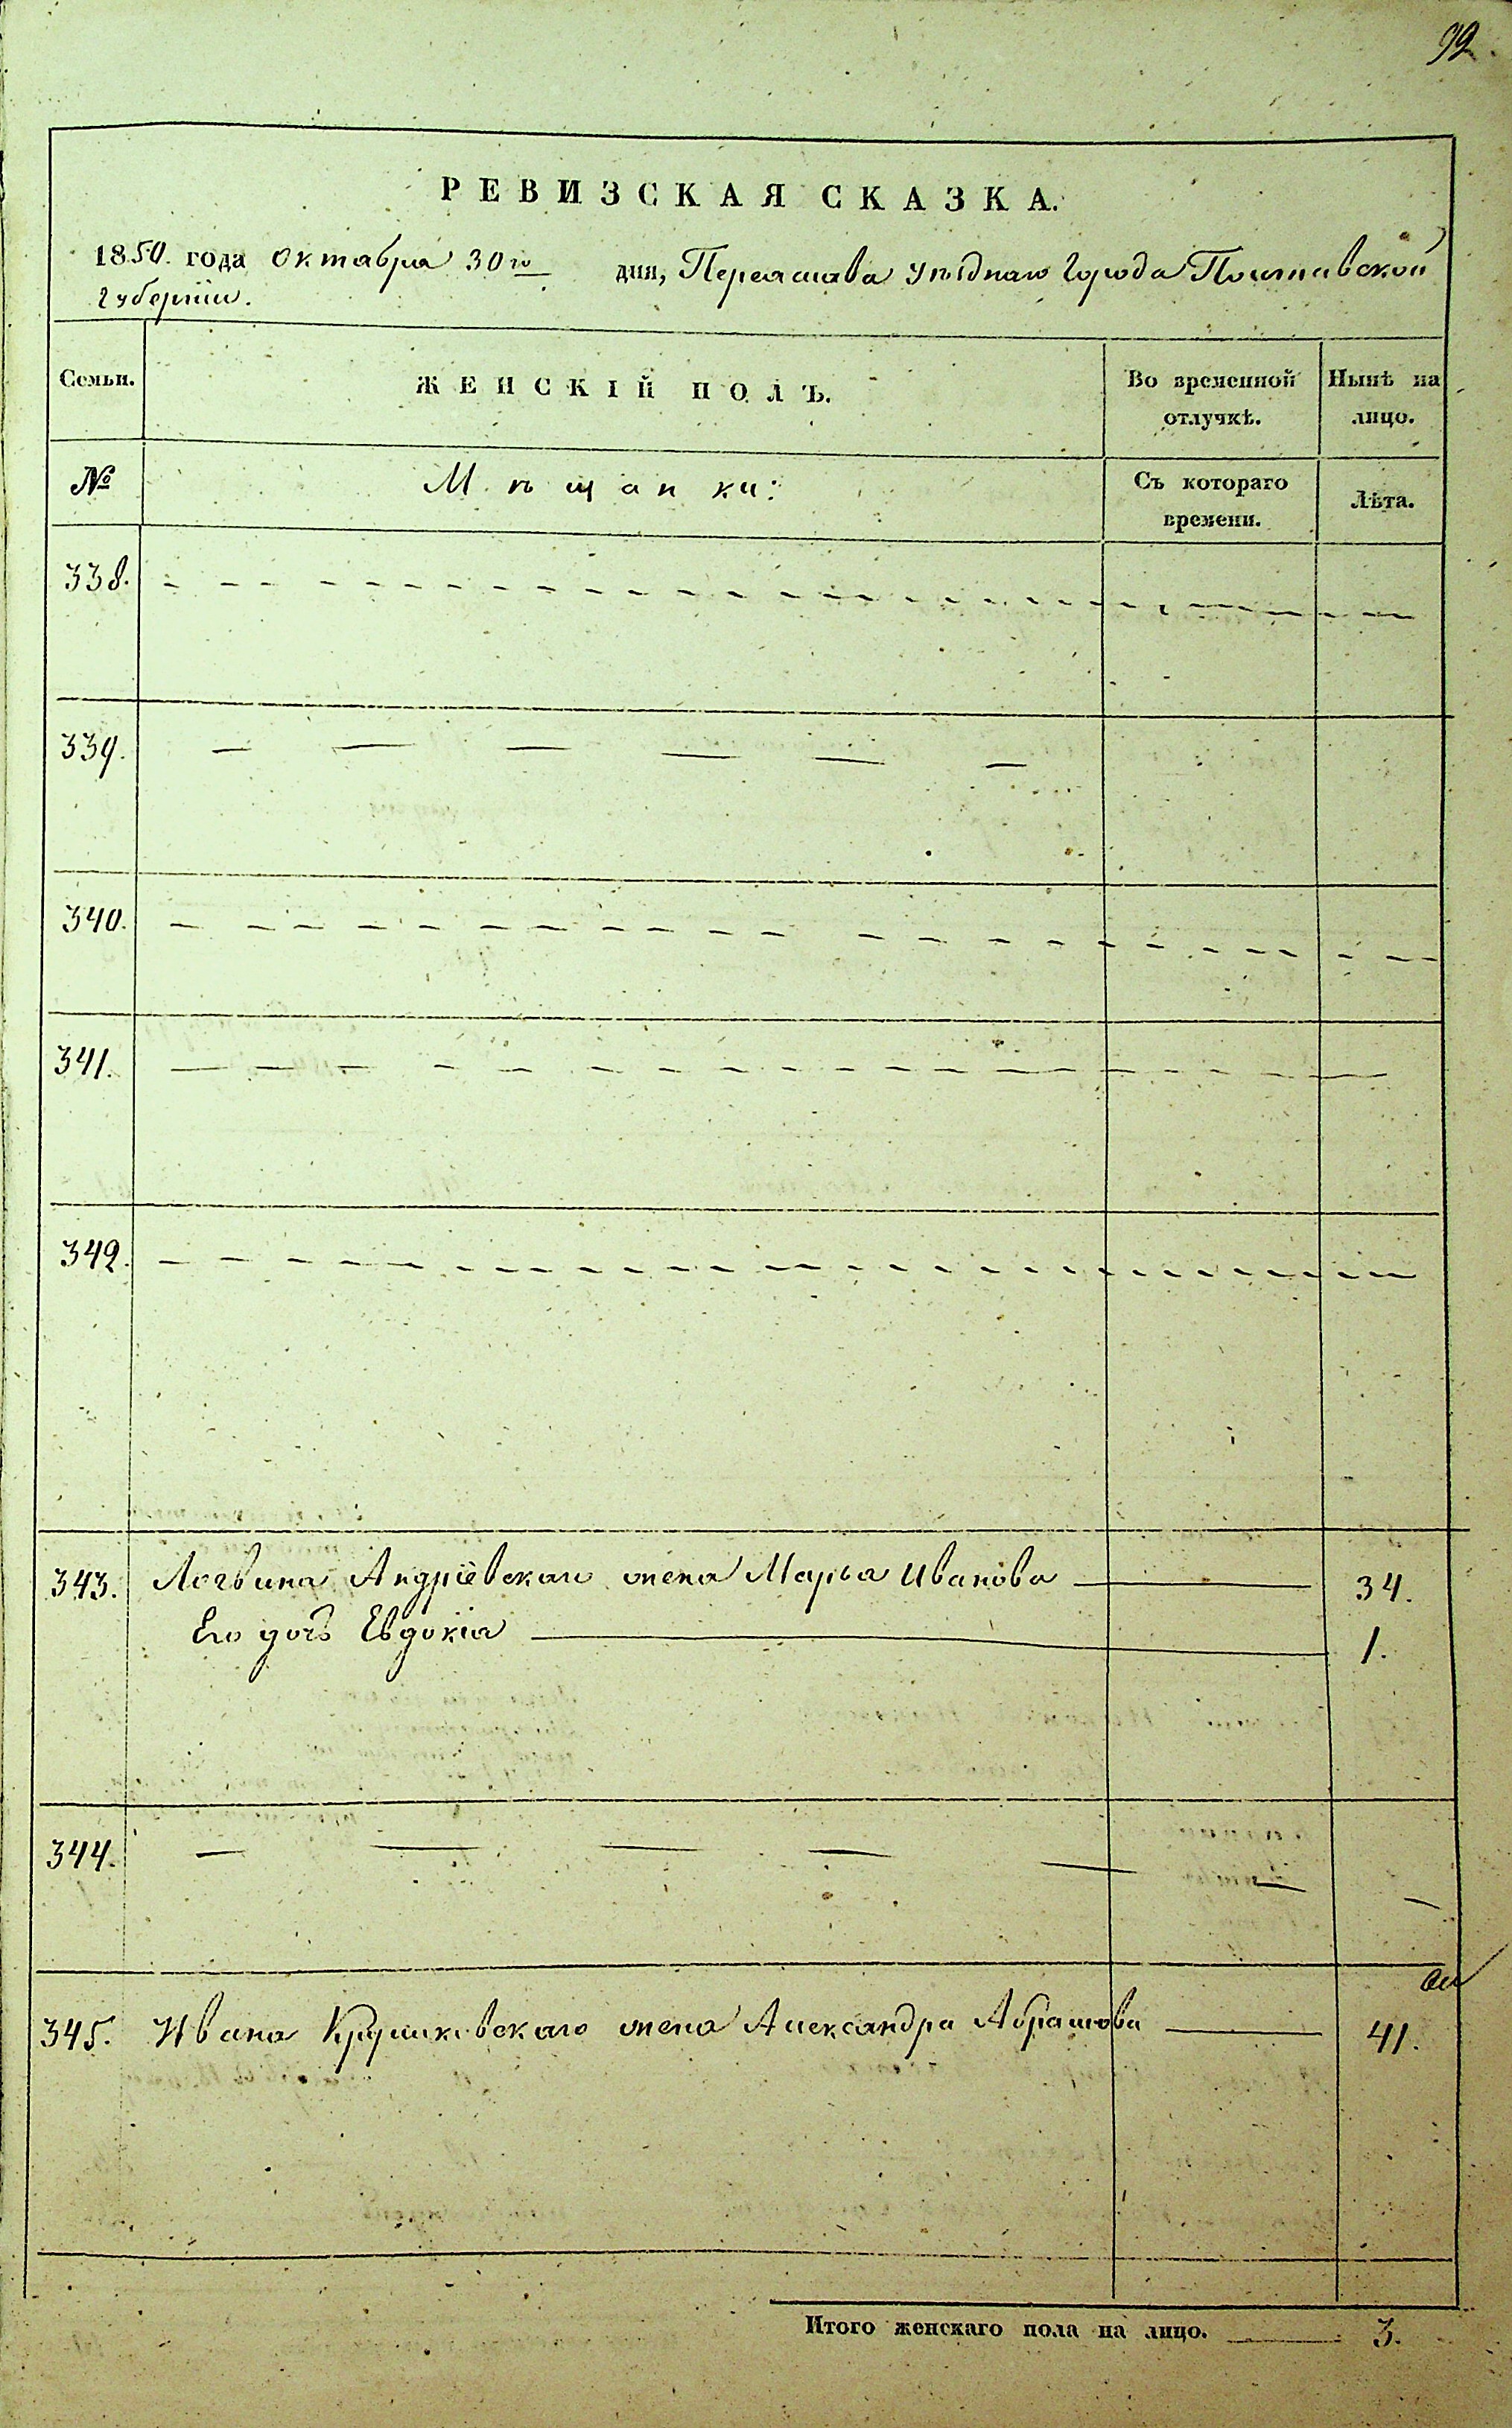 92
РЕВИЗСКАЯ СКАЗКА.
1850. года октября 30го дня, Переяслава уѣзднаго Города Полтавской
Губерніи.
Семьи. ЖЕНСКІЙ ПОЛЪ. Во временной отлучкѣ. Нынѣ на лицо.
№ Мѣщанки: Съ котораго времени. Лѣта.
338.
339.
340.
341.
342.
343. Логвина Андріевскаго жена Марья Иванова 34.
Его дочь Евдокія 1.
344.
345. Ивана жена Александра Абрамова 41.
Итого женскаго пола на лицо. 3.